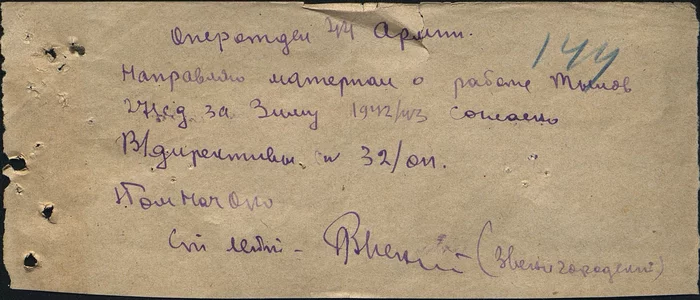 Опер отдел 44 Армии.
144
Направляю материал о работе тылов
за Зиму 1942/43 согласно
В/директивы № 32/оп.
Пом Нач Опо
Ст лейт - (Звенигородский)